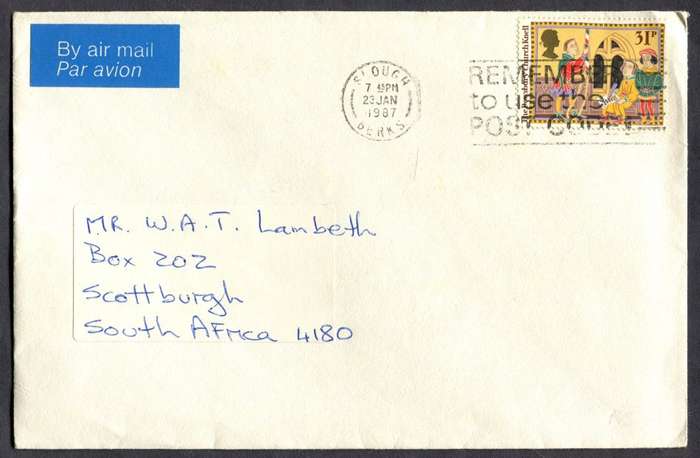 By air mail
Par avion
SLOUGH
7 15PM
23 JAN
1987
BERKS
REMEMBER
to use the
POST CODE
31P
The Hereford Church Knell
MR. W.A.T. Lambeth
Box 202
Scottburgh
South Africa 4180